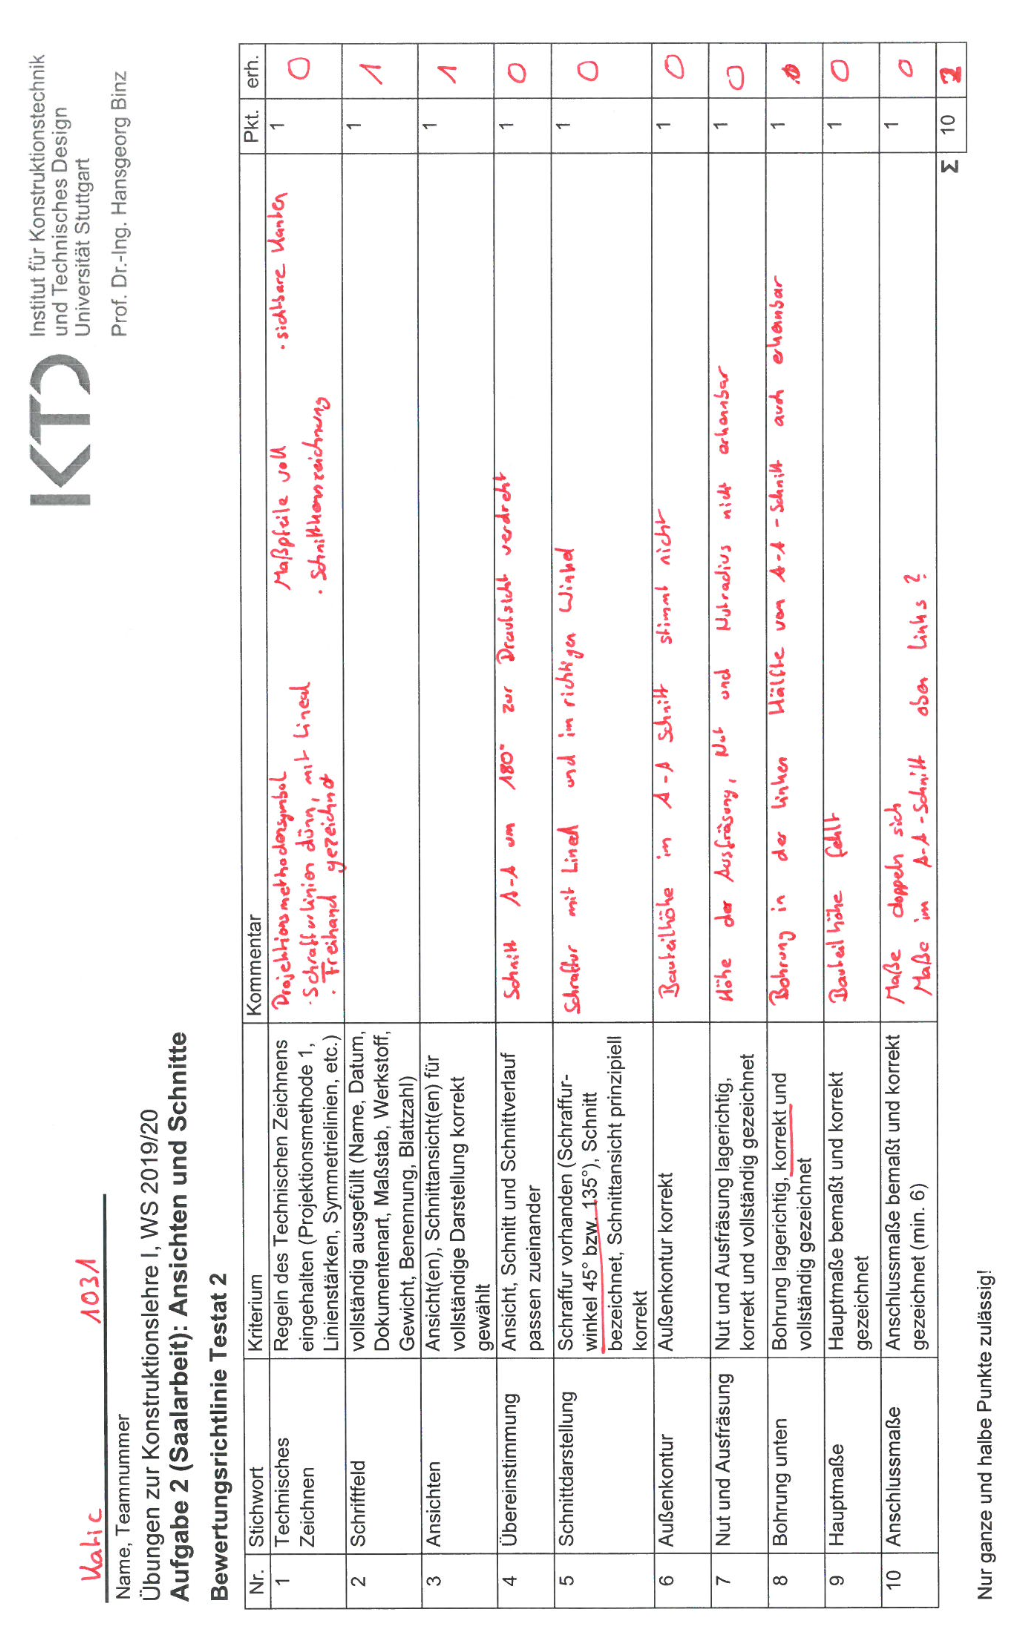 KTD
Institut für Konstruktionstechnik
und Technisches Design
Universität Stuttgart
Prof. Dr.-Ing. Hansgeorg Binz
Katic 1031
Name, Teamnummer
Übungen zur Konstruktionslehre I, WS 2019/20
Aufgabe 2 (Saalarbeit): Ansichten und Schnitte
Bewertungsrichtlinie Testat 2
Nr. Stichwort Kriterium Kommentar Pkt. erh.
1 Technisches Zeichnen
Regeln des Technischen Zeichnens
eingehalten (Projektionsmethode 1,
Linienstärken, Symmetrielinien, etc.)
Projektionsmethodensymbol Maßpfeile voll · sichtbare Kanten
· Schraffurlinien dünn, mit Lineal · Schnittkennzeichnung
· Freihand gezeichnet
1 0
2 Schriftfeld
vollständig ausgefüllt (Name, Datum,
Dokumentenart, Maßstab, Werkstoff,
Gewicht, Benennung, Blattzahl)
1 1
3 Ansichten
Ansicht(en), Schnittansicht(en) für
vollständige Darstellung korrekt
gewählt
1 1
4 Übereinstimmung
Ansicht, Schnitt und Schnittverlauf
passen zueinander
Schnitt A-A um 180° zur Draufsicht verdreht
1 0
5 Schnittdarstellung
Schraffur vorhanden (Schraffur-
winkel 45° bzw. 135°), Schnitt
bezeichnet, Schnittansicht prinzipiell
korrekt
Schraffur mit Lineal und im richtigen Winkel
1 0
6 Außenkontur
Außenkontur korrekt
Bauteilhöhe im A-A Schnitt stimmt nicht
1 0
7 Nut und Ausfräsung
Nut und Ausfräsung lagerichtig,
korrekt und vollständig gezeichnet
Höhe der Ausfräsung, Nut und Nutradius nicht erkennbar
1 0
8 Bohrung unten
Bohrung lagerichtig, korrekt und
vollständig gezeichnet
Bohrung in der linken Hälfte vom A-A-Schnitt auch erkennbar
1 0
9 Hauptmaße
Hauptmaße bemaßt und korrekt
gezeichnet
Bauteilhöhe fehlt
1 0
10 Anschlussmaße
Anschlussmaße bemaßt und korrekt
gezeichnet (min. 6)
Maße doppeln sich
Maße im A-A-Schnitt oben links?
1 0
Σ 10 2
Nur ganze und halbe Punkte zulässig!